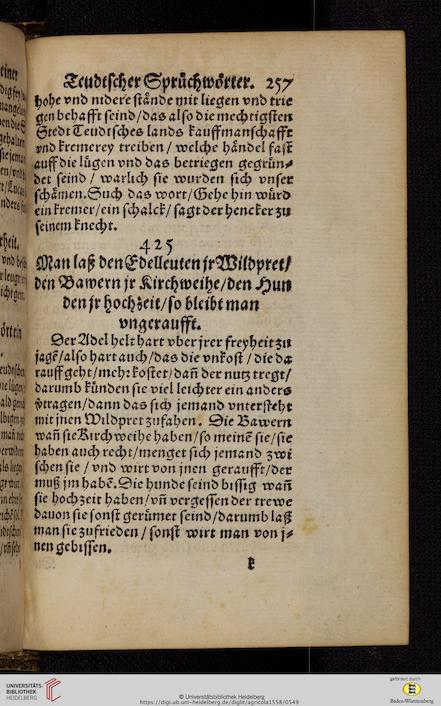 Teudtscher Sprüchwörter. 257
hohe vnd nidere stände mit liegen vnd trie
gen behafft seind/das also die mechtigsten
Stedt Teudtsches lands kauffmanschafft
vnd kremerey treiben / welche händel fast
auff die lügen vnd das betriegen gegrün⸗
det seind / warlich sie wurden sich vnser
schämen.Such das wort/Gehe hin würd
ein kremer/ein schalck/ sagt der hencker zu
seinem knecht.
425
Man laß den Edelleuten jr Wildpret/
den Bawern jr Kirchweihe/den Hun
den jr hochzeit/so bleibt man
vngeraufft.
Der Adel helt hart vber jrer freyheit zu
jagē/also hart auch/das die vnkost / die da
rauff geht/mehr kostet/dañ der nutz tregt/
darumb künden sie viel leichter ein anders
v̈tragen/dann das sich jemand vntersteht
mit jnen Wildpret zufahen. Die Bawern
wañ sie Kirchweihe haben/so meinē sie/sie
haben auch recht/menget sich jemand zwi
schen sie / vnd wirt von jnen geraufft/der
muß jm habē.Die hunde seind bissig wañ
sie hochzeit haben/vñ vergessen der trewe
dauon sie sonst gerümet seind/darumb laß
man sie zufrieden / sonst wirt man von j⸗
nen gebissen.
k
UNIVERSITÄTS-
BIBLIOTHEK
HEIDELBERG
© Universitätsbibliothek Heidelberg
https://digi.ub.uni-heidelberg.de/diglit/agricola1558/0549
gefördert durch
Baden-Württemberg